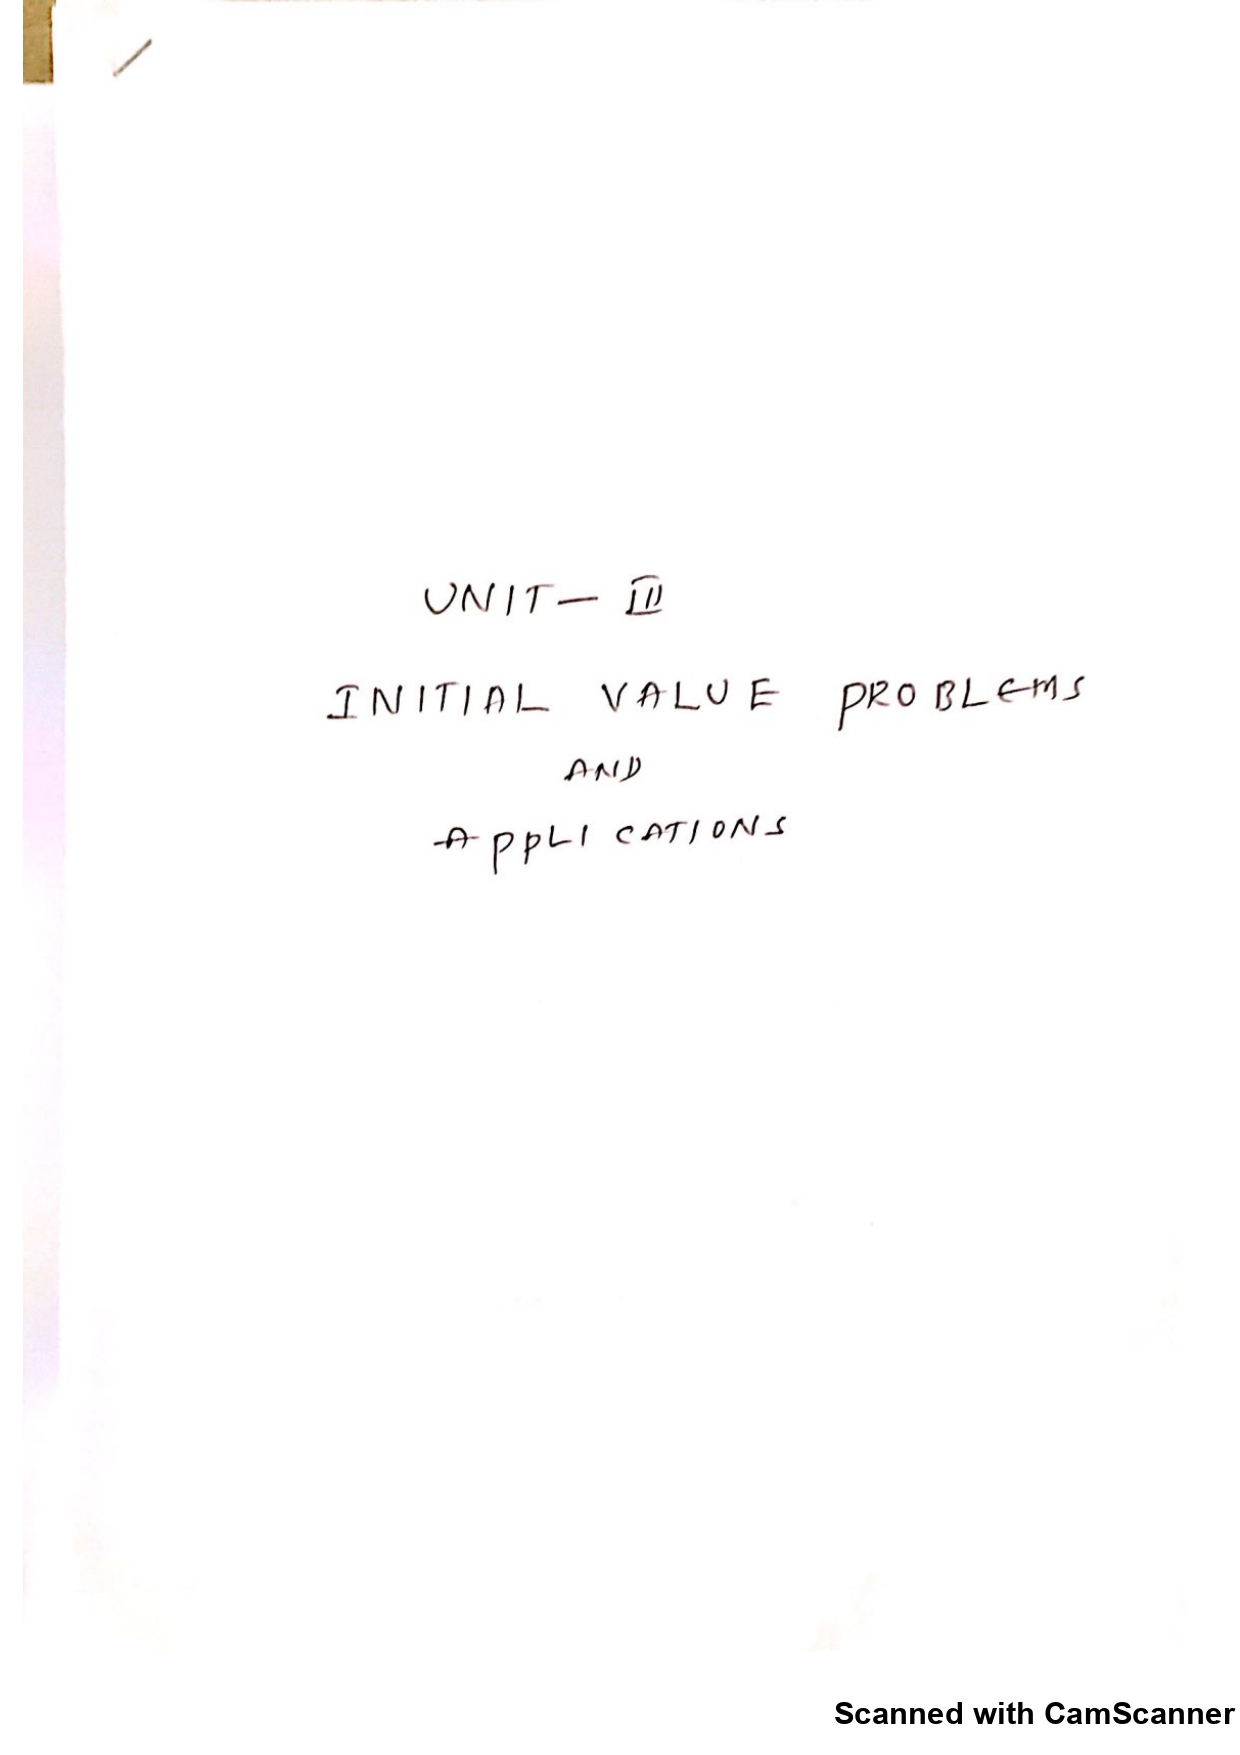 UNIT - III
INITIAL VALUE PROBLEMS
AND
APPLICATIONS
Scanned with CamScanner